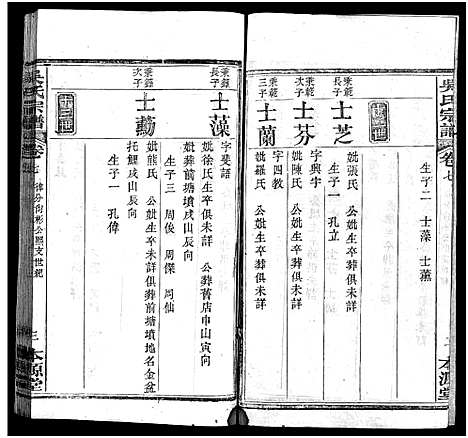 吳氏宗譜
卷七
本源堂
生子二 士藻 士薰
士芝
秉乾長子
妣張氏 公妣生卒葬俱未詳
生子一 孔立
士芬
秉乾次子
字興宇
妣陳氏 公妣生卒葬俱未詳
士蘭
秉乾三子
字四教
妣羅氏 公妣生卒葬俱未詳
士藻
長子
字斐語
妣徐氏生卒俱未詳 公葬舊店申山寅向
妣葬前塘墳戌山辰向
生子三 周俊 周傑 周仙
士勳
次子
妣熊氏 公妣生卒未詳俱葬前塘墳地名金盆
托鯉戌山辰向
生子一 孔偉
吳氏宗譜
卷七
三
本源堂